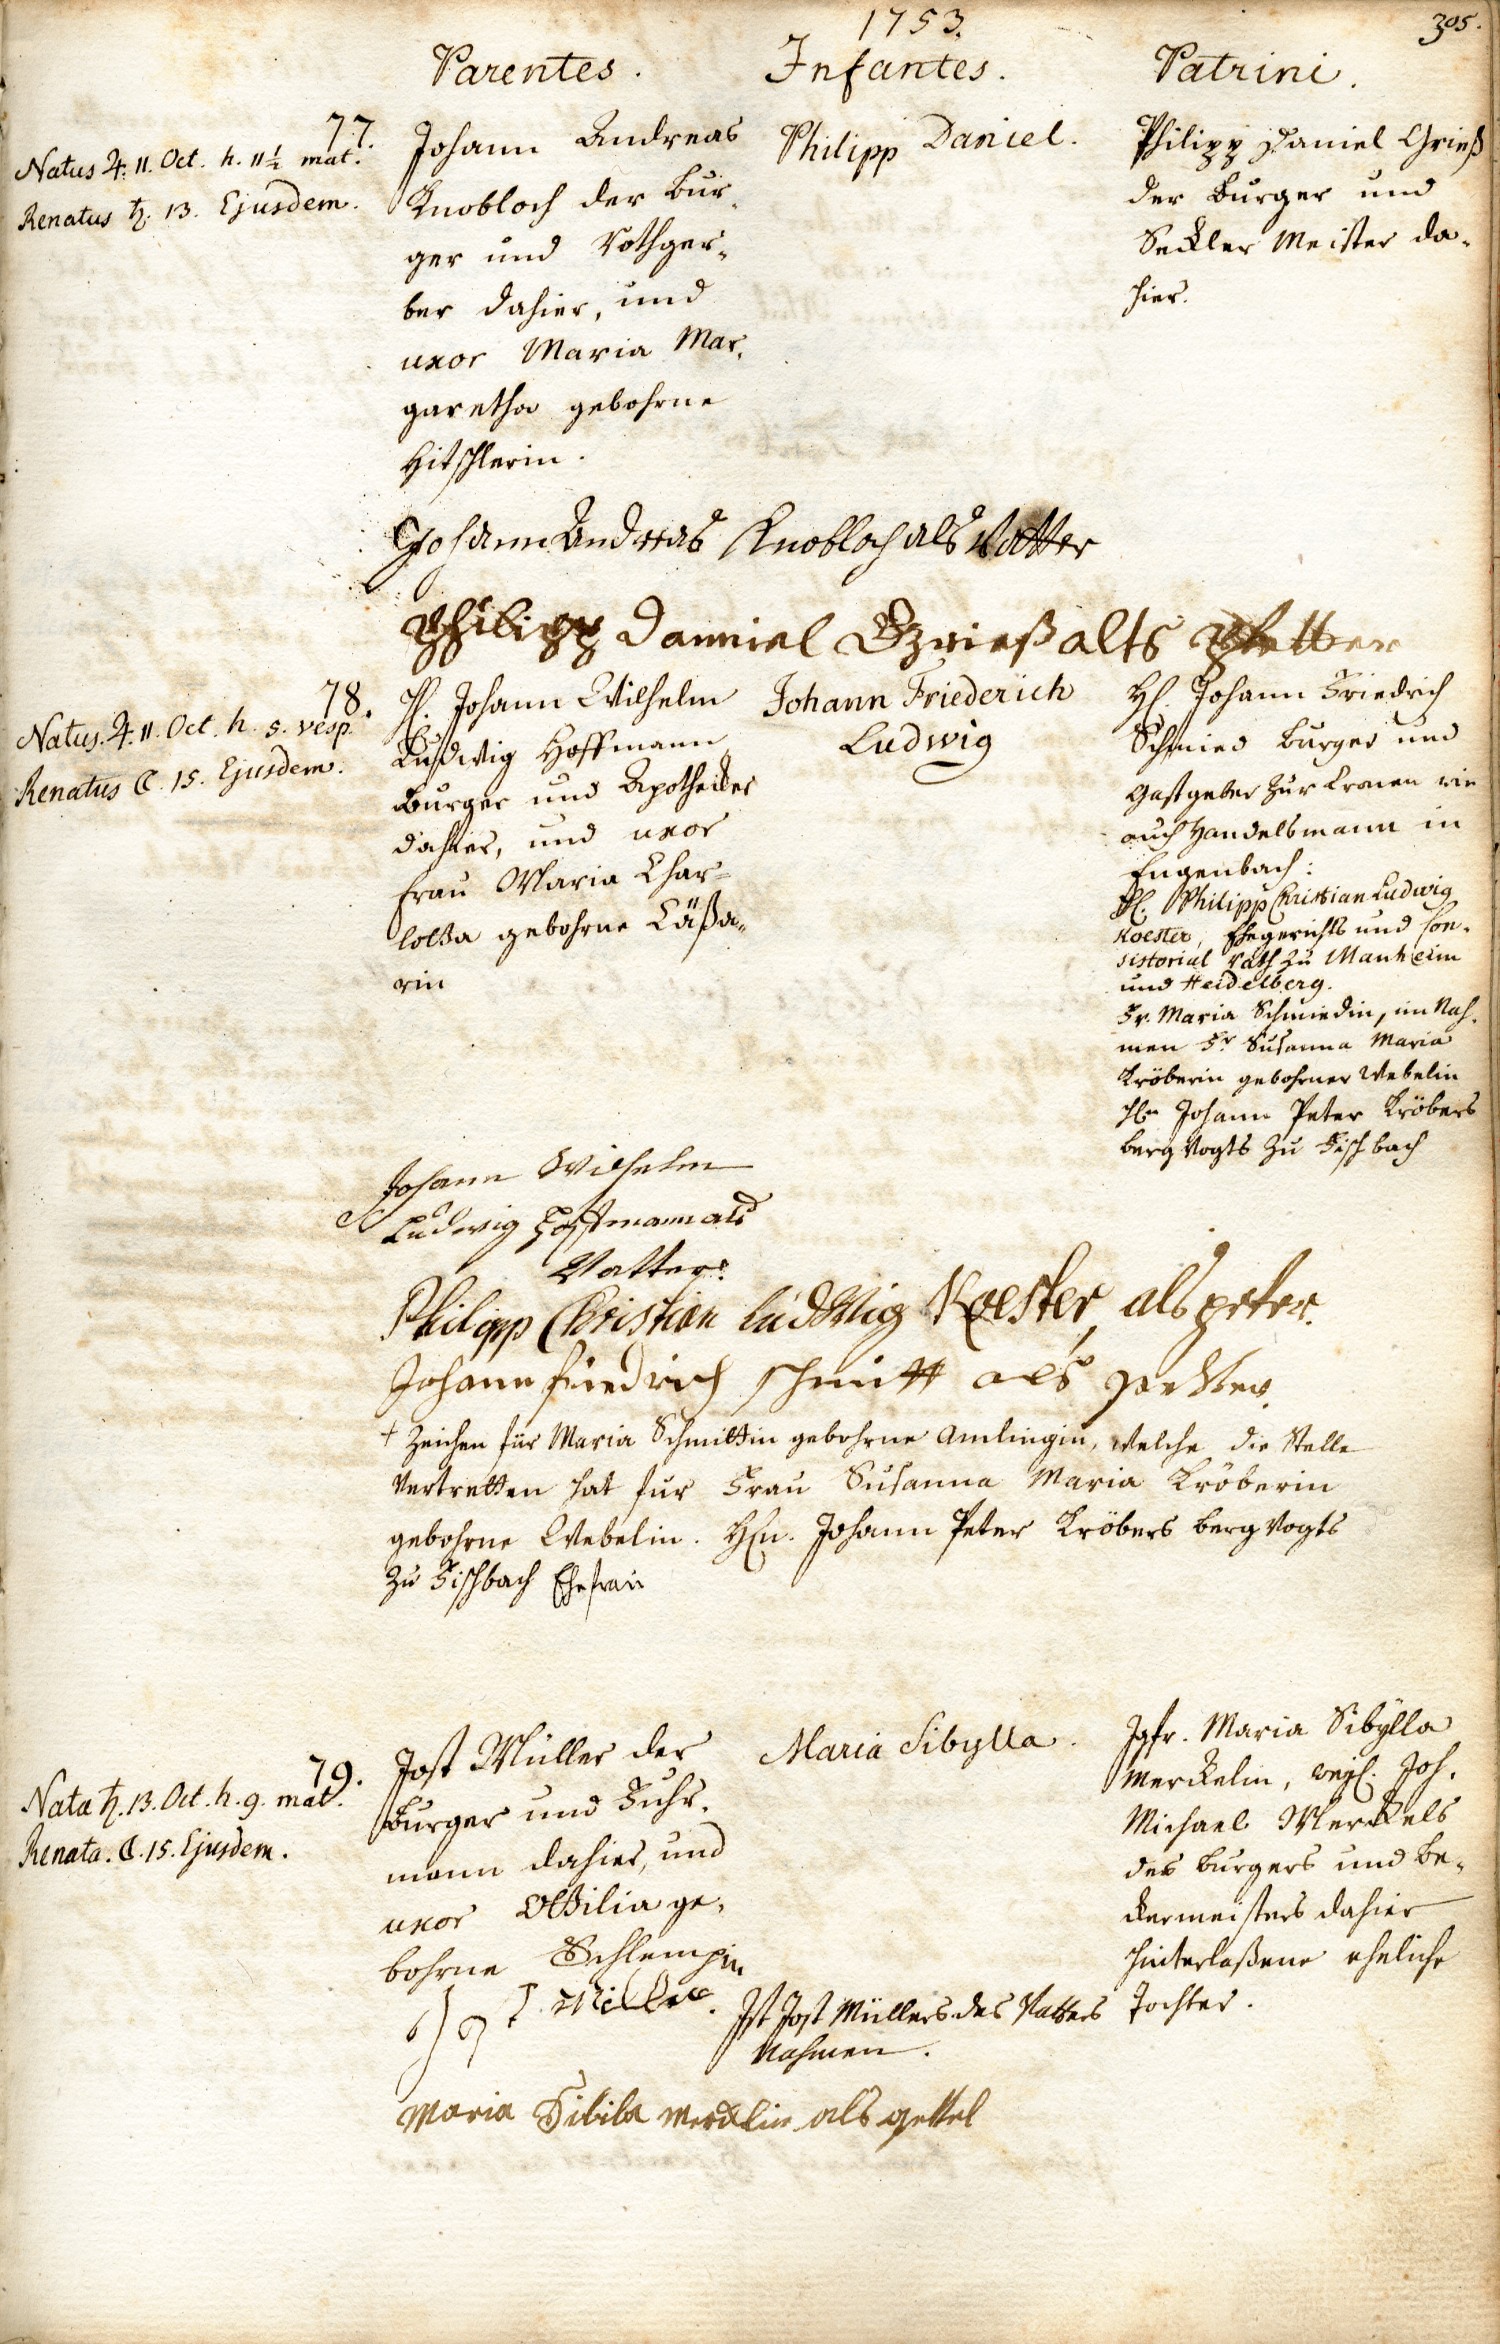 1753.
305.
Parentes.
Infantes.
Patrini.
77.
Natus ♃. 11. Oct. h. 11½ mat.
Renatus ♄. 13. Ejusdem.
Johann Andreas
Knobloch der Bur-
ger und Rothger-
ber dahier, und
uxor Maria Mar-
garetha gebohrne
Hitschlerin.
Philipp Daniel.
Philipp Daniel Grieß
der Burger und
Seckler Meister da-
hier.
Johann Andreas Knobloch als Vatter
Philipp Danniel Grieß alts Petter
78.
Natus. ♃. 11. Oct. h. 5. vesp.
Renatus ☾. 15. Ejusdem.
H. Johann Wilhelm
Ludwig Hoffmann
Burger und Apothecker
dahier, und uxor
Frau Maria Char-
lotta gebohrne Cäßa-
rin
Johann Friederich
Ludwig
H. Johann Friedrich
Schmied Burger und
Gastgeber zur Cronen wie
auch Handelsmann in
Eugenbach:
H. Philipp Christian Ludwig
Koester, Ehegerichts und Con-
sistorial Rath zu Manheim
und Heidelberg.
Fr. Maria Schmiedin, im Nah-
men Fr. Susanna Maria
Kröberin gebohrner Webelin
Hn Johann Peter Kröbers
berg Vogts zu Fischbach
Johann Wilhelm
Ludwig Hoffmann als
Vatter.
Philipp Christian Ludwig Koester, als peter.
Johann friedrich schmitt als petter.
+ Zeichen für Maria Schmittin gebohrne Amlingin, welche die Stelle
Vertretten hat fur Frau Susanna Maria Kröberin
gebohrne Webelin. Hn. Johann Peter Kröbers berg Vogts
zu Fischbach Ehefrau
79.
Nata ♄. 13. Oct. h. 9. mat.
Renata. ☾. 15. Ejusdem.
Jost Müller der
Burger und Fuhr-
mann dahier, und
uxor Ottilia ge-
bohrne Schlempin
Maria Sibylla.
Jgfr. Maria Sibylla
Merckelin, weyl. Joh.
Michael Merckels
des Burgers und Be-
ckermeisters dahier
hinterlaßene eheliche
Tochter.
Ist Jost Müllers des Vatters
Nahmen.
Maria Sibila Mercklin als gettel